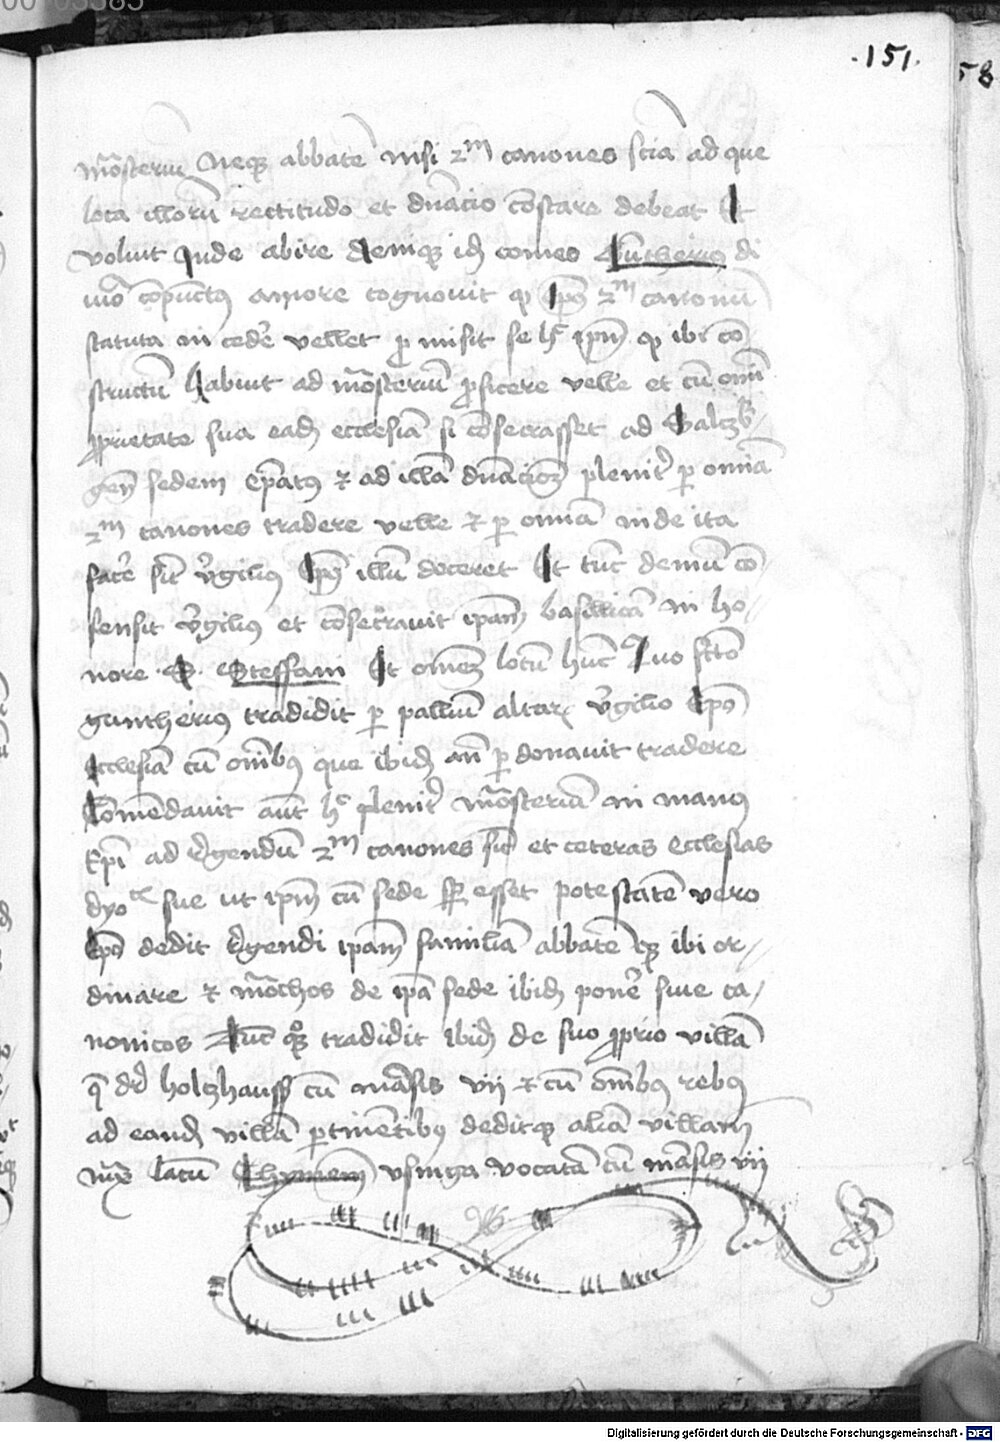 .151.
58
mo͞steriu͞ Neq₃ abbate͞ nisi 2m canones scia͞ ad que
loca illoru͞ rectitudo et dn͞acio co͞stare debeat Et
voluit Inde abire deniq₃ id͞ comes Gu͞therius di
vi͞o co͞pu͞ctus amore cognovit q͞ Ep͞s 2m canonu͞
statuta in ced͛e vellet p͞misit se h͞ ip͞m q͞ ibi co͞
structu͞ habuit ad mo͞steriu͞ p͞ficere velle et cu͞ om͞i
p͞prietate sua ead͞ ecclesia͞ si co͞secrasset ad Salczb͛
gen͞ sedem ep͞atus et ad illa͞ dn͞acio͞₃ plenit͛ p͞ omnia͞
2m canones tradere velle et p͞ omnia͞ inde ita
fac͛e sic͞ v͛gilius Ep͞s illu͞ doceret Et tu͞c demu͞ co͞
sensit v͛gilius et co͞secravit ipam͞ basilica͞ in ho
nore S. Steffani Et ome͞₃ locu͞ hu͞c Quo f͞co͞
guntherius tradidit p͞ palliu͞ altar͛ v͛gilio Ep͞o
Ecclesia͞ cu͞ om͞ibus que ibid͞ an͞ p͞donavit tradere
Com͞endavit aut͞ h͞ plenit͛ mo͞steriu͞ in manus
Ep͞i ad r͛gendu͞ 2m canones sic͞ et ceteras Ecclesias
dyoc͞ sue ut ip͞m cu͞ sede se͞p esset potestate͞ vero
Ep͞o dedit r͛gendi ipam͞ familia͞ abbate͞ q₃ ibi or
dinare et mo͞chos de ip͞a sede ibid͞ pon͛e sive ca
nonicos Tu͞c q₃ tradidit ibid͞ de suo p͞prio villa͞
q͞ d͞r holtzhauss cu͞ ma͞sis vii et cu͞ om͞ibus rebus
ad eand͞ villa͞ p͞tine͞tibus deditq₃ alia͞ villam͞
iux͞ lacu͞ Chymem͞ Usinga vocata͞ cu͞ ma͞sis vii
Digitalisierung gefördert durch die Deutsche Forschungsgemeinschaft - DFG